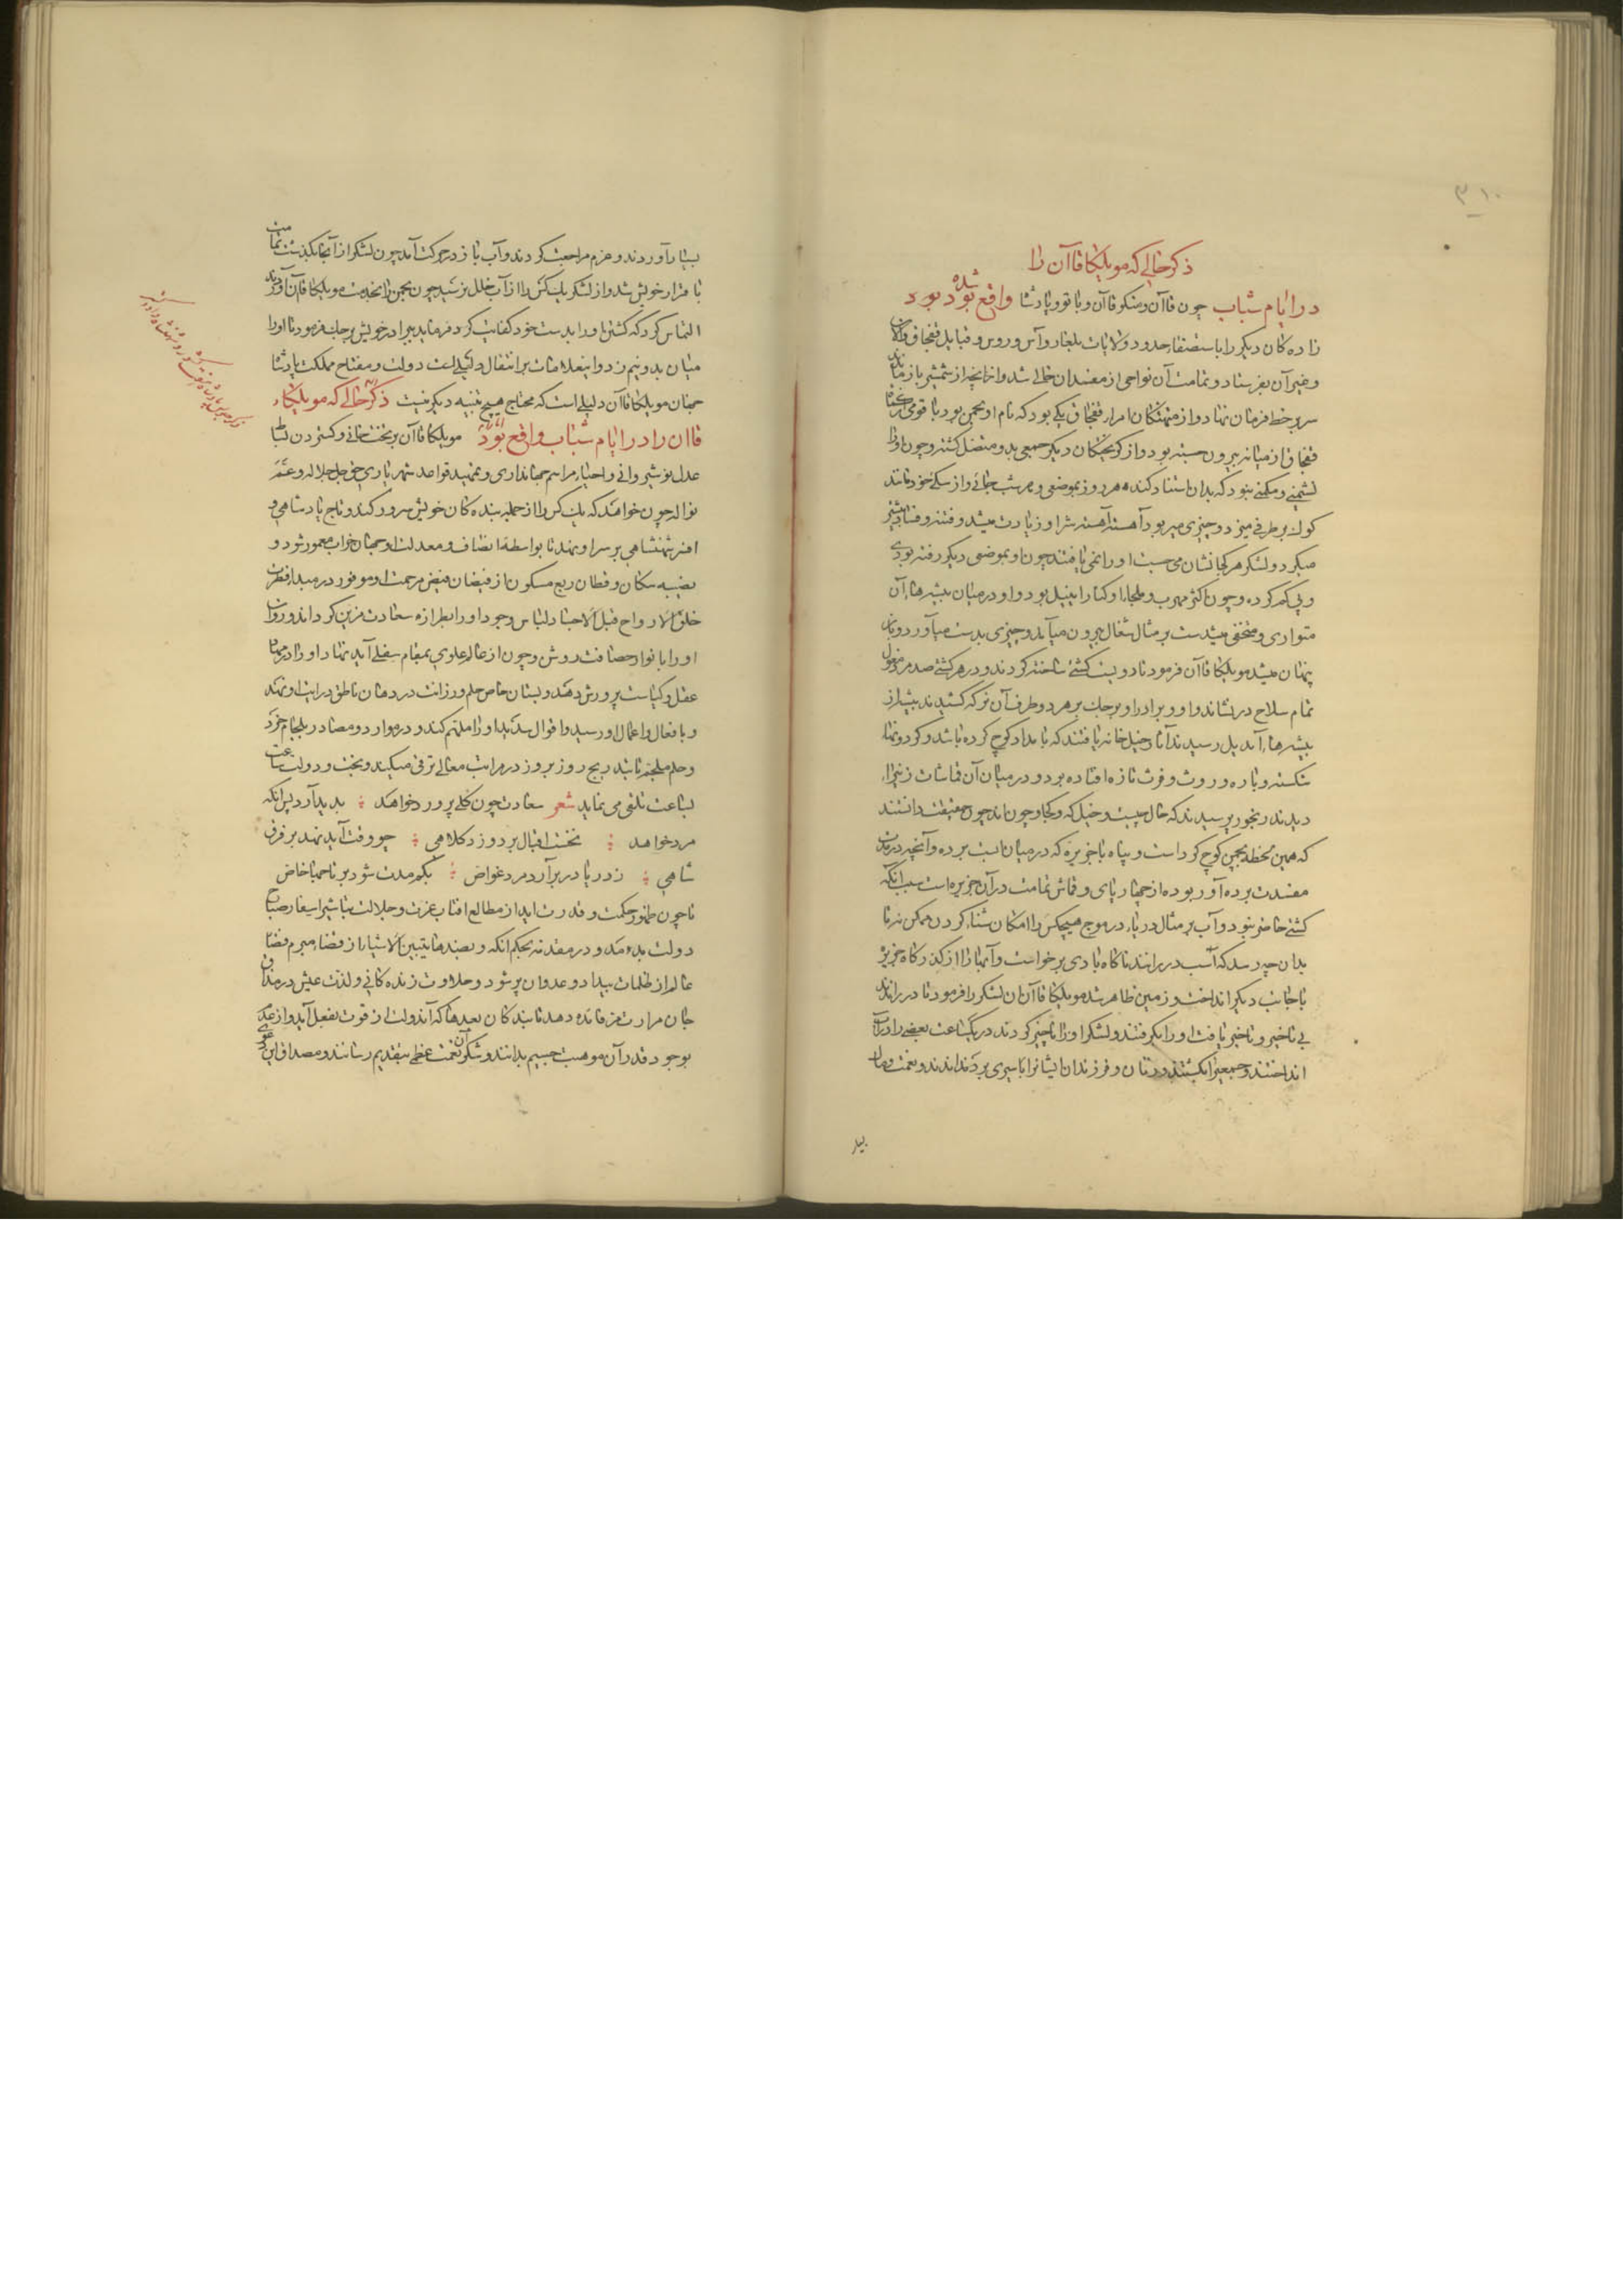 ۳۱۰
ذکر حالی که مونککا قاآن را
در ایام شباب چون قاآن ومنکو قاآن وباتو وپادشا واقع شده بود بود
زادهکان دیکر را باستصفاء حدود ولایات بلغار وآس وروس وقبایل قفجاق والان
وغیر آن بفرستاد وتمامت آن نواحی از مفسدان خالی شد وانچه از شمشیر باز ماند
سر بر خط فرمان نهاد واز منهزمان امراء قفجاق یکی بود که نام او بجمن بود با قومی
قفجاق از میانه بیرون جسته بود واز کریختکان دیکر جمعی بدو متصل کشته وچون او را
نشیمنی ومکمنی نبود که بدان استناد کند هر روز بموضعی وهر شب جائی واز سکی خود مانند
کرک بر طرفی میزد وچیزی میبرد آهسته آهسته شر او زیادت میشد وفتنه وفساد بیشتر
میکرد ولشکر هر کجا نشان می جست او را نمی یافتند چون او بموضعی دیکر رفته بودی
وپی کم کرده وچون اکثر مهرب وملجاء او کنار اتیل بود واو در میان بیشهاء آن
متواری ومختفی میشدست بر مثال شغال بیرون میآمد وچیزی بدست میآورد وباز
پنهان میشد مونککا قاآن فرمود تا دویست کشتی ساختند کردند ودر هر کشتی صد مرد مغول
تمام سلاح در نشاند واو وبرادر او بوجک بر هر دو طرف آن نرکه کشیدند
بیشهاء اتیل رسیدند آثار خیل خانه یافتند که بامداد کوچ کرده باشد وکردونها
شکسته وپاره وروث وفرث تازه افتاده بود ودر میان آن قماشات زنی را
دیدند رنجور پرسیدند که حال چیست وخیل که وکجا وچون اند چون حقیقت دانستند
که همین لحظه بجمن کوچ کرداست وپناه با جزیره که در میان است برده وآنچه در مدت
مفسدت برده آورده بوده از چهارپای وقماش تمامت در آن جزیره است سبب آنکه
کشتی حاضر نبود وآب بر مثال دریاء در موج هیچکس را امکان شناء کردن ممکن نه تا
بدان چه رسد که اسب در رانند ناکاه بادی برخواست وآبها را از کذرکاه جزیره
با جانب دیکر انداخت وزمین ظاهر شد مونککا قاآن لشکر را فرمود تا در راندند
بی تاخیر وتا خبر یافت او را بکرفتند ولشکر او را ناچیز کردند در یکساعت بعضی را در آب
انداختند وجمعی را بکشتند وزنان وفرزندان ایشانرا باسیری براندند ونعمت ومال
بسیار
بسیار آوردند وعزم مراجعت کردند وآب باز در حرکت آمد چون لشکر از آنجا بکذشت تمامت
با قرار خویش شد واز لشکر یک کس را از آب خلل نرسید چون بجمن را بخدمت مونککا قاآن آوردند
التماس کرد که کشتن او را بدست خود کفایت کرد فرماید ببرادر خویش بوجک فرمود تا او را
میان بدو نیم زد واینعلامات بر انتقال دلیلیست دولت ومفتاح مملکت پادشا
جهان مونککا قاآن دلیلی است که محتاج هیچ تنبیه دیکر نیست ذکر حالی که مونککاء
قاآن را در ایام شباب واقع بود مونککا قاآن بر تخت خانی وکستردن بساط
عدل نوشیروانی واحیاء مراسم جهانداری وتمهید قواعد شهریاری حق جل جلاله وعم
نواله چون خواهد که یک کس را از جمله بندهکان خویش سرور کند وتاج پادشاهی و
افسر شهنشاهی بر سر او نهد تا بواسطه انصاف ومعدلت او جهان خراب معمور شود و
نصیبه سکان وقطان ربع مسکون از فیضان فیض مرحمت او موفور در مبداء فطرت
خلق الارواح قبل الاجساد لباس وجود او را بطرازه سعادت مزین کرداند وروان
او را بانوار حصافت روشن وچون از عالم علوی بمقام سفلی آید نهاد او را در مهد
عقل وکیاست پرورش دهد وپستان خاص حلم ورزانت در دهان ناطق درایت او نهد
وبافعال واعمال او رسید واقوال سدید او را ملهم کند ودر موارد ومصادر بلجام خرد
وحلم ملجم باشد بتدریج روز بروز در مراتب معالی ترقی میکند وبخت ودولت ساعت
بساعت تلقی می نماید شعر سعادت چون کلی پرورد خواهد ؛ بدید آرد پس آنکه
مرد خواهد ؛ نخست اقبال بر دوزد کلاهی ؛ چو وقت آید نهد بر فرق
شاهی ؛ ز دریا در برآرد مرد غواص ؛ بکم مدت شود بر تاجها خاص
تا چون ظهور حکمت وقدرت ابد از مطالع آفتاب عزت وجلالت تباشیر اسفار صباح
دولت بدمد ودر مقدمه بحکم آنکه وبضدها یتبین الاشیاء از قضاء مبرم فضاء
عالم از ظلمات بیداد وعدوان پر شود وحلاوت زندهکانی ولذت عیش در مذاق
جان مرارت مزه فایده دهد تا بندکان بعدها که آن دولت از قوت بفعل آید واز عدم
بوجود قدر آن موهبت جسیم بدانند وشکر آن نعمت عظمی بتقدیم رسانند ومصداق این